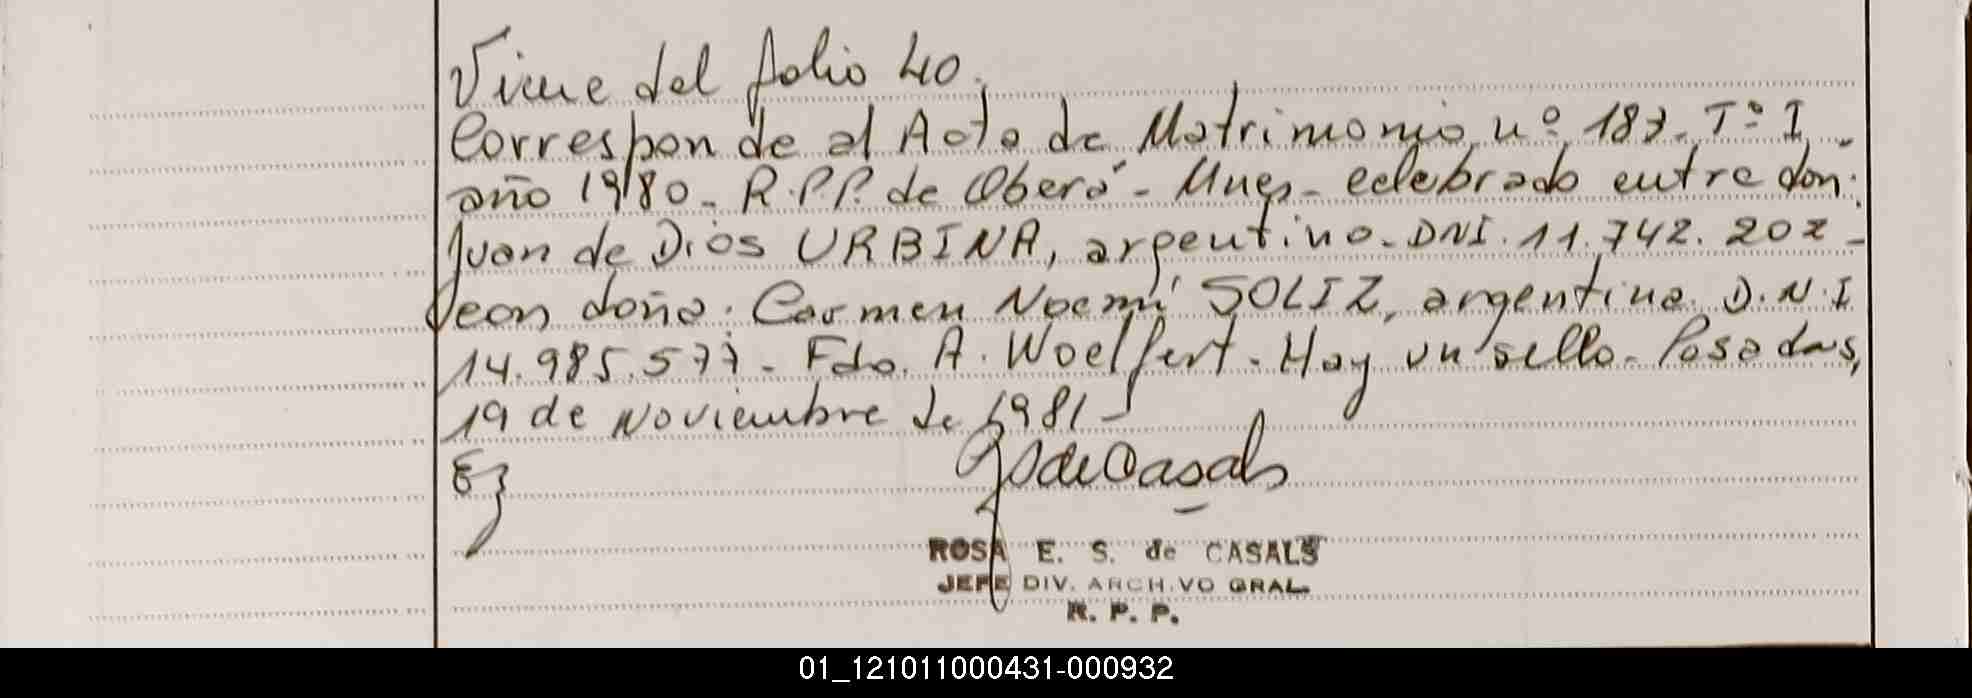 Viene del folio 40.
Corresponde al Acta de Matrimonio nº 187. Tº I -
año 1980 - R.P.P. de Oberá - Mnes - celebrado entre don:
Juan de Dios URBINA, argentino - DNI. 11.742.202 -
con doña: Carmen Noemí SOLIZ, argentina. D.N.I
14.985.577 - Fdo. A. Woelfert - Hay un sello - Posadas,
19 de Noviembre de 1981 -
de Casals
ROSA E. S. de CASALS
JEFE DIV. ARCHIVO GRAL.
R. P. P.
01_121011000431-000932